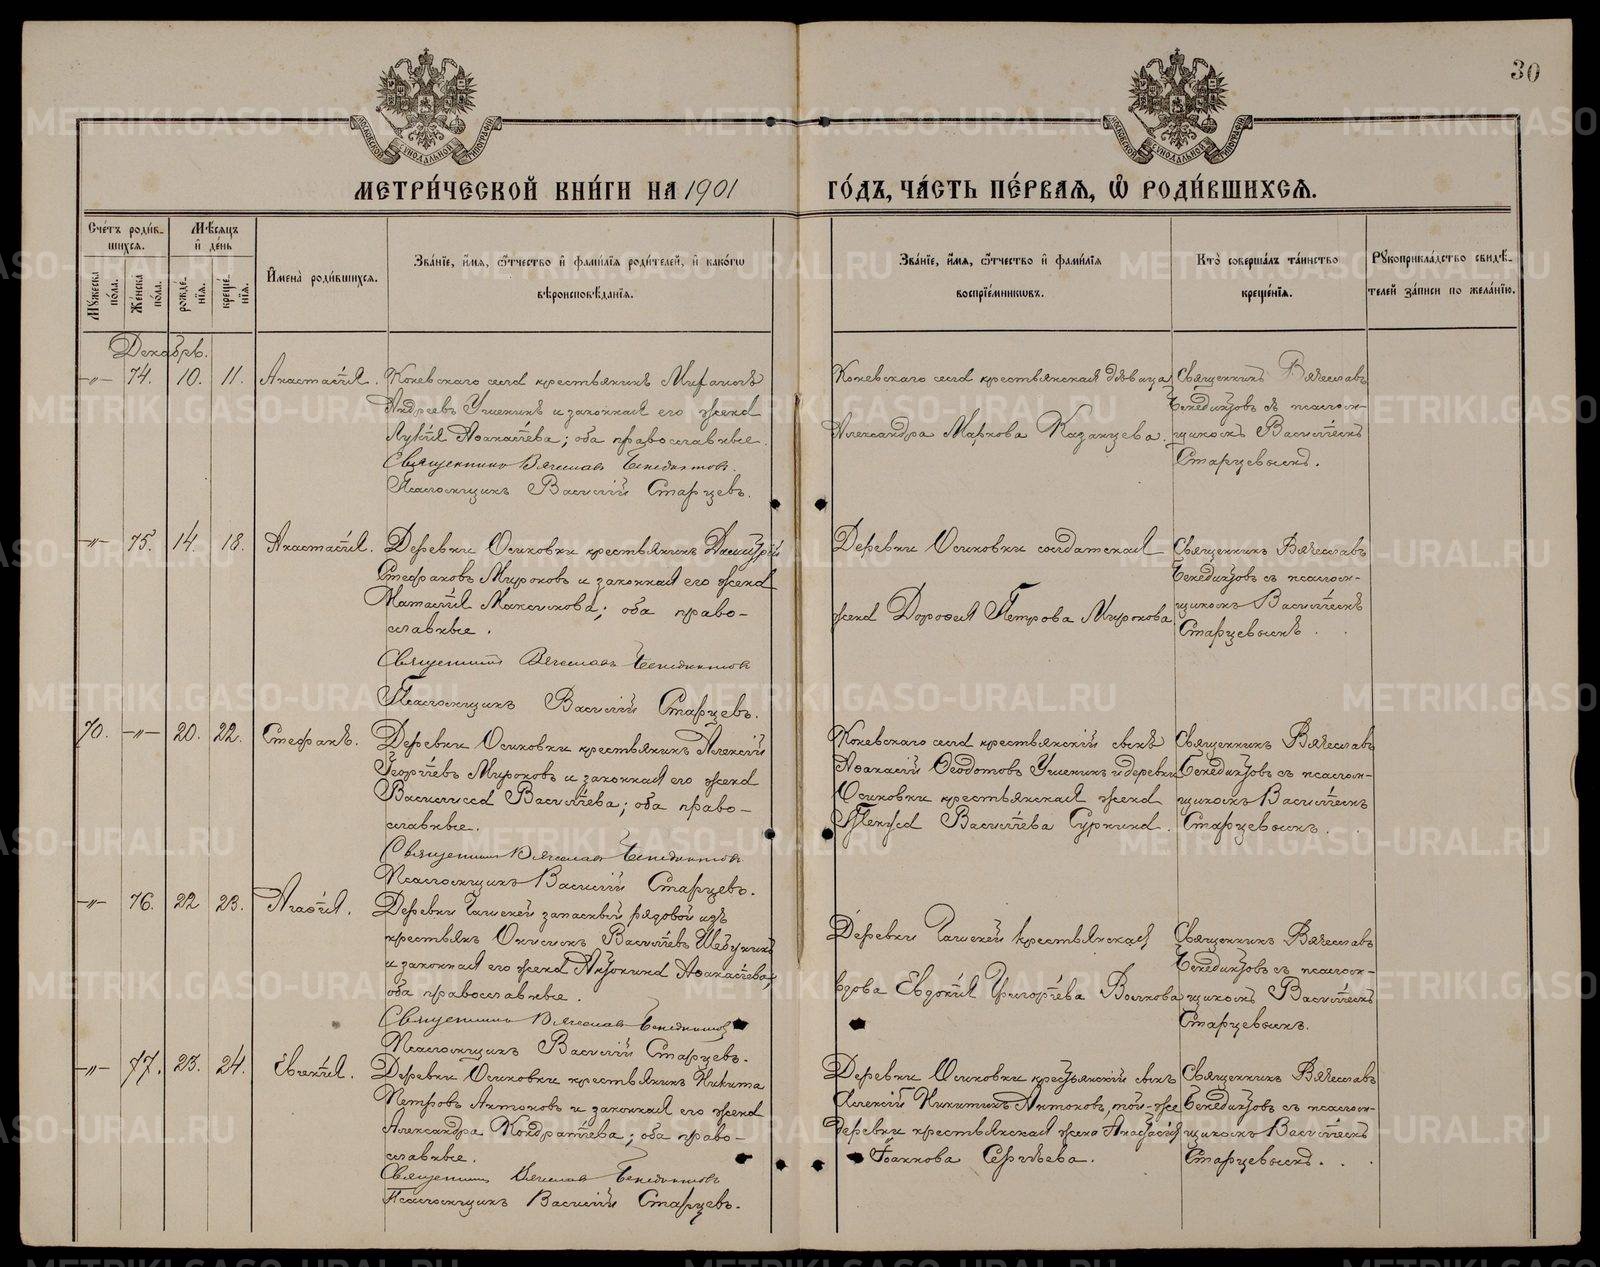 30
МОСКОВСКОЙ СѴНОДАЛЬНОЙ ТИПОГРАФІИ
МОСКОВСКОЙ СѴНОДАЛЬНОЙ ТИПОГРАФІИ
МЕТРИ́ЧЕСКОЙ КНИ́ГИ НА 1901 ГО́ДЪ, ЧА́СТЬ ПЕ́РВАЯ, Ѡ҆ РОДИ́ВШИХСЯ.
Сче́тъ роди́в-
шихся.
Мꙋжеска по́ла.
Же́нска по́ла.
Мѣ́сяцъ
и҆ де́нь
рожде́-
нїя.
креще́-
нїя.
И҆мена̀ роди́вшихся.
Зва́нїе, и҆́мя, ѻ҆́тчество и҆ фами́лїя роди́телей, и҆ како́гѡ
вѣроисповѣ́данїя.
Зва́нїе, и҆́мя, ѻ҆́тчество и҆ фами́лїя
воспрїе́мникѡвъ.
Кто̀ соверша́лъ та́инство
креще́нїя.
Рꙋкоприкла́дство свидѣ́-
телей за́писи по жела́нїю.
Декабрь.
—„— 74. 10. 11. Анастасія.
Коневскаго села крестьянинъ
Андреевъ Ушенинъ и законная его жена
Аѳанасіева; оба православные.
Священникъ Вячеславъ Бенедиктовъ.
Псаломщикъ Василій Старцевъ.
Коневскаго села крестьянская дѣвица
Александра Маркова Казанцева.
Священникъ Вячеславъ
Бенедиктовъ съ псалом-
щикомъ Василіемъ
Старцевымъ.
—„— 75. 14. 18. Анастасія.
Деревни Осиновки крестьянинъ Димитрій
Стефановъ Мироновъ и законная его жена
Максимова; оба право-
славные.
Священникъ Вячеславъ Бенедиктовъ
Псаломщикъ Василій Старцевъ.
Деревни Осиновки солдатская
жена Дороѳея Петрова Миронова
Священникъ Вячеславъ
Бенедиктовъ съ псалом-
щикомъ Василіемъ
Старцевымъ.
70. —„— 20. 22. Стефанъ.
Деревни Осиновки крестьянинъ Алексій
Георгіевъ Мироновъ и законная его жена
Василисса Василіева; оба право-
славные.
Священникъ Вячеславъ Бенедиктовъ
Псаломщикъ Василій Старцевъ.
Коневскаго села крестьянскій сынъ
Аѳанасій Ѳеодотовъ Ушенинъ и деревни
Осиновки крестьянская жена
Василіева Сурнина.
Священникъ Вячеславъ
Бенедиктовъ съ псалом-
щикомъ Василіемъ
Старцевымъ.
—„— 76. 22 23. Агаѳія.
Деревни запасный рядовой изъ
крестьянъ Онисимъ Василіевъ
и законная его жена Антонина Аѳанасіева;
оба православные.
Священникъ Вячеславъ Бенедиктовъ
Псаломщикъ Василій Старцевъ.
Деревни крестьянская
вдова Евдокія Григоріева Волкова
Священникъ Вячеславъ
Бенедиктовъ съ псалом-
щикомъ Василіемъ
Старцевымъ.
—„— 77. 23. 24. Евгенія.
Деревни Осиновки крестьянинъ Никита
Петровъ Антоновъ и законная его жена
Александра Кондратіева; оба право-
славные.
Священникъ Вячеславъ Бенедиктовъ
Псаломщикъ Василій Старцевъ.
Деревни Осиновки крестьянскій сынъ
Алексій Никитинъ Антоновъ, той-же
деревни крестьянская жена Анастасія
Іоаннова Сергѣева.
Священникъ Вячеславъ
Бенедиктовъ съ псалом-
щикомъ Василіемъ
Старцевымъ.
METRIKI.GASO-URAL.RU